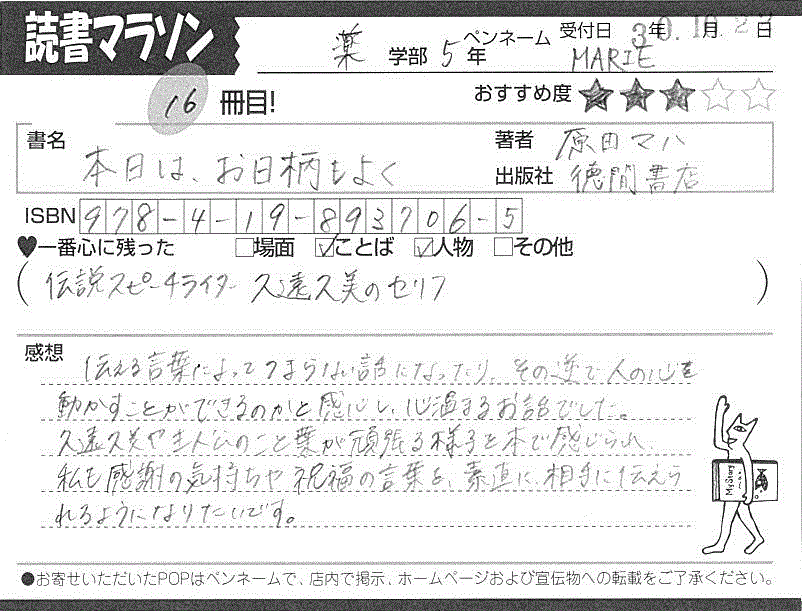 読書マラソン
薬 学部 5 年
ペンネーム MARIE
受付日 30年10月22日
16 冊目!
おすすめ度 ★★★☆☆
書名 本日は、お日柄もよく
著者 原田マハ
出版社 徳間書店
ISBN 978-4-19-893706-5
♥一番心に残った □場面 ☑ことば ☑人物 □その他
(伝説スピーチライター 久遠久美のセリフ)
感想
伝える言葉によってつまらない話になったり、その逆で人の心を
動かすことができるのかと感心し、心温まるお話でした。
久遠久美や主人公のこと葉が頑張る様子を本で感じられ、
私も感謝の気持ちや祝福の言葉を、素直に、相手に伝えら
れるようになりたいです。
●お寄せいただいたPOPはペンネームで、店内で掲示、ホームページおよび宣伝物への転載をご了承ください。